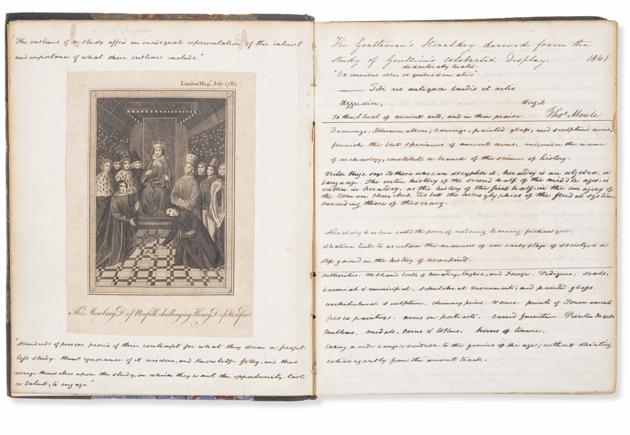 "The outlines of a study afford an inadequate representation of the interest
and importance of what those outlines include"
London Mag. July 1782.
Tho. Mowbray D. of Norfolk challenging Henry D. of Hereford
"Hundreds of persons proud of their contempt for what they deem a profit-
less study. think ignorance of it wisdom, and knowledge folly, and thus
upon the study, in which they want the opportunity, taste
or talent, to engage"
The Gentleman's Heraldry derived from the
study of Guillim's celebrated Display. 1841
didactically treated.
Tibi res antiquae laudis et artis
Aggredior, Virgil
To the zeal of ancient arts, and in their praise. Thos. Moule
Drawings, Illuminations, carvings, painted glass, and sculptured arms,
furnish the best specimens of ancient arms, and under the name
of archaeology, constitute a branch of the science of history.
Victor Hugo says To those who can decypher it, heraldry is an algebra, a
language. The entire history of the second half of the middle ages, is
written in heraldry, as the history of the first half, in the imagery of
the Roman churches, 'tis but the hieroglyphics of the feudal system
succeeding those of theocracy.
Heraldry has been called the power of rendering learning picturesque.
Whatever tends to ascertain the manners of an early stage of society, is a
step gained in the history of mankind.
Authorities. MS. and books of Heraldry, English, and Foreign. Pedigrees. seals,
baronial & municipal, sepulchral monuments, and painted glass.
architectural sculpture, chimney pieces. Vanes. prints of Tournaments
fresco paintings. arms on portraits. Carved furniture Printers marks
Emblems. medals, Coins & tokens. horns of tenure.
taking a wide range, suitable to the genius of the age, without deviating
extravagantly from the ancient track.